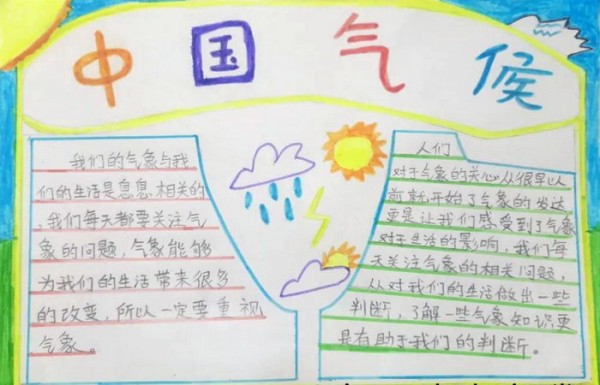 中国气候
我们的气象与我
们的生活是息息相关的
,我们每天都要关注气
象的问题,气象能够
为我们的生活带来很多
的改变,所以一定要重视
气象。
人们
对于气象的关心从很早以
前就开始了气象的发达
更是让我们感受到了气象
对于生活的影响,我们每
天关注气象的相关问题,
从对我们的生活做出一些
判断,了解一些气象知识更
是有助于我们的判断。